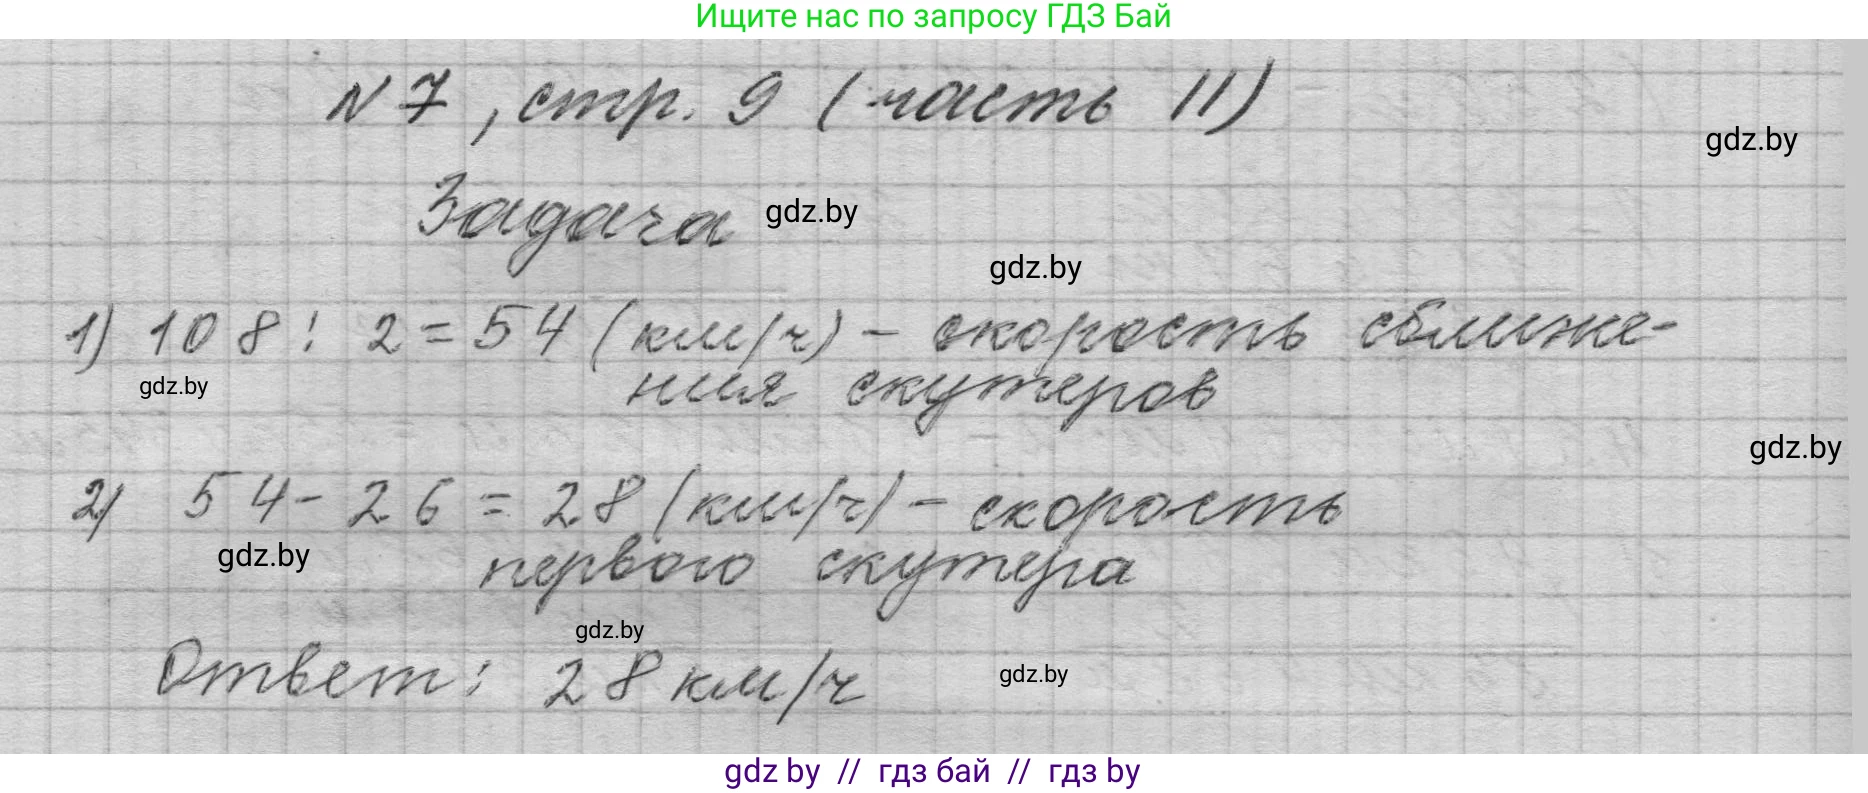 Ищите нас по запросу ГДЗ Бай
N 7, стр. 9 (часть II)
gdz.by
Задача
gdz.by
gdz.by
1) 108 : 2 = 54 (км/ч) – скорость сближе-
gdz.by
ния скутеров
gdz.by
2) 54 - 26 = 28 (км/ч) – скорость
gdz.by
первого скутера
gdz.by
Ответ: 28 км/ч
gdz.by
gdz by // гдз бай // гдз by